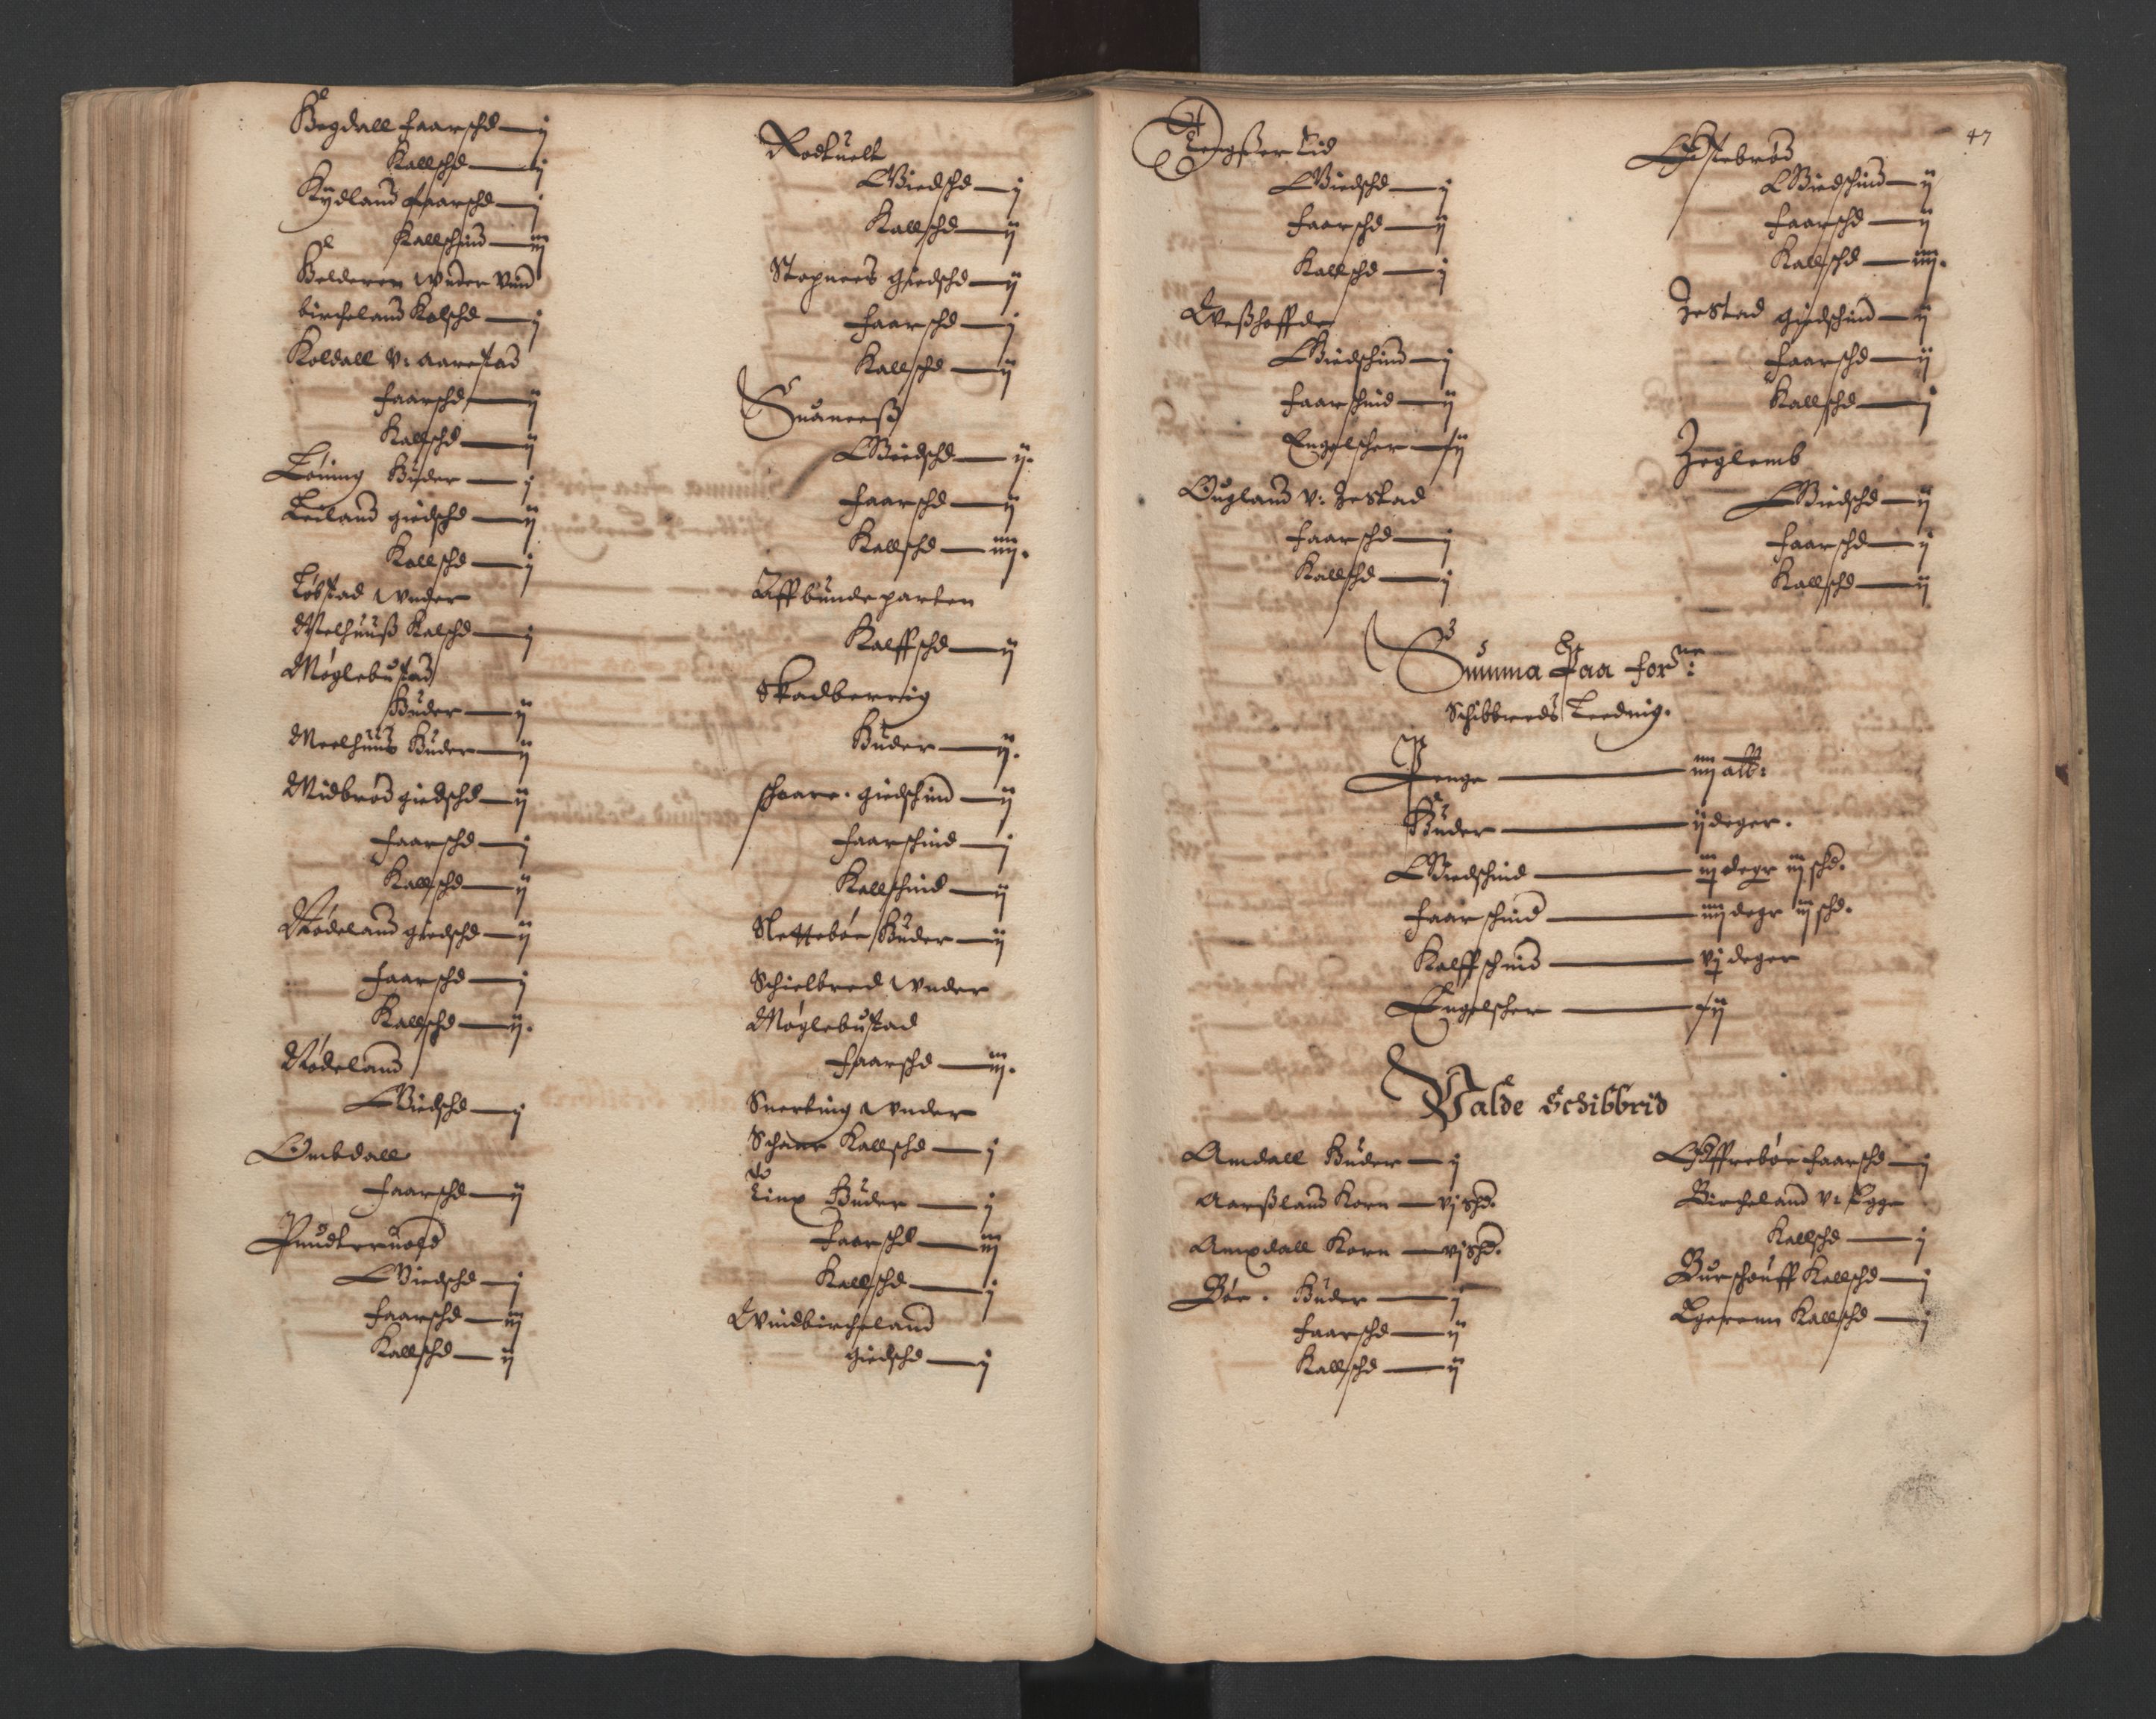 Begdall faarschd — j
Kallschd — j
Kydland faarschd — j
Kallschind — iij
Helderen wnder Vind
bircheland Kalschd — j
Koldall v: aarestad
faarschd — ij
Kallschd — ij
Löning Huder — j
Leiland giedschd — ij
Kallschd — j
Löbstad wnder
Melhuuß Kalschd — j
Möglebustad
Huder — ij
Meelhuus Huder — ij
Midbrød giedschd — ij
faarschd — j
Kallschd — ij
Nödeland giedschd — ij
faarschd — j
Kallschd — ij.
Nödeland
Giedschd — j
Ombdall
faarschd — ij
Prudteruold
Giedschd — j
faarschd — iij
Kallschd — ij
Rodtuelt
Giedschd — j
Kallschd — ij
Stapnees giedschd — ij
faarschd — j
Kallschd — ij
Suaneeß
Giedschd — ij.
faarschd — ij
Kallschd — iiij.
Aff bundeparten
Kalffschd — ij
Skadberrig
Huder — ij.
schaare. giedschind — ij
faarschind — j
Kallschind — ij
Slettebøe Huder — ij
Schielbred wnder
Möglebustad
faarschd — iij.
Snerting wnder
Schaar Kallschd — j
Linx Huder — j
faarschd — iij
Kallschd — j
Windbircheland
giedschd — j
47
Tengßer Lid
Giedschd — j
faarschd — ij
Kallschd — j
Weßhoffde
Giedschind — j
faarschind — ij
Engelscher — ij
Ougland v: Jestad
faarschd — j
Kallschd — j
Østebrød
Giedschind — ij
faarschd — ij
Kallschd — iiij.
Jestad giedschind — ij
faarschd — ij
Kallschd — j
Jeglemb
Giedschd — ij
faarschd — j
Kallschd — ij
Summa Paa forne:
Schibbreds Leedning.
Penge — iiij alb:
Huder — ij deger.
Giedschind — iij degr iij schd.
faarschind — iiij degr iij schd.
Kalffschind — vj deger
Engelscher — ij
Walde Schibbrid
Amdall Huder — j
Aarßland Korn — vj Spd.
Anxdall Korn — vj Spd.
Bøe. Huder — j
faarschd — ij
Kallschd — ij
Øffrebøe faarschd — j
Bircheland v: Egge
Kallschd — j
Burschouff Kallschd — j
Egerenn Kallschd — j